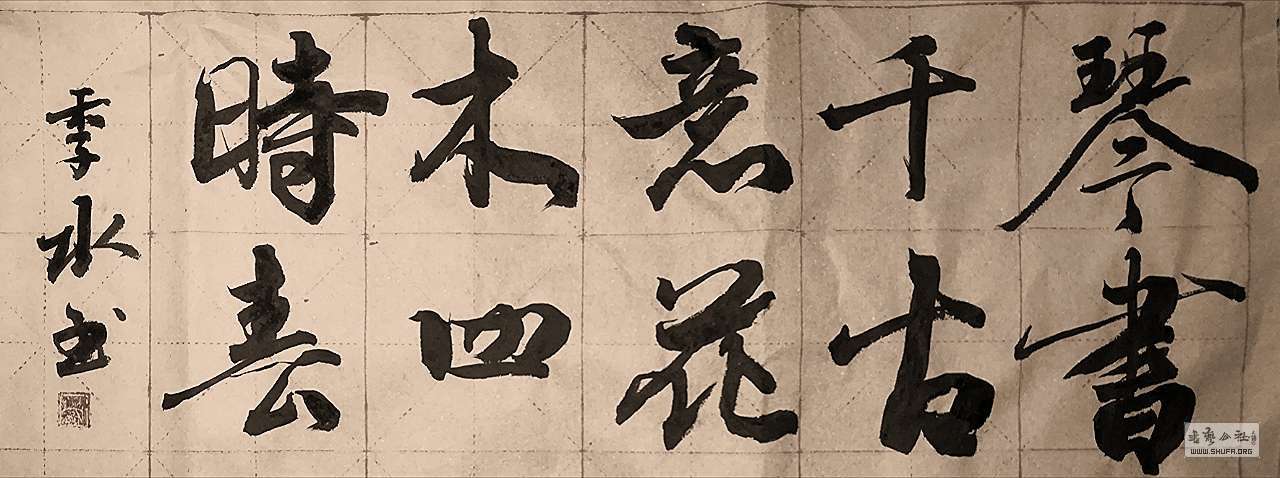 琴書
千古
意花
木四
時春
季水书
书艺公社
WWW.SHUFA.ORG